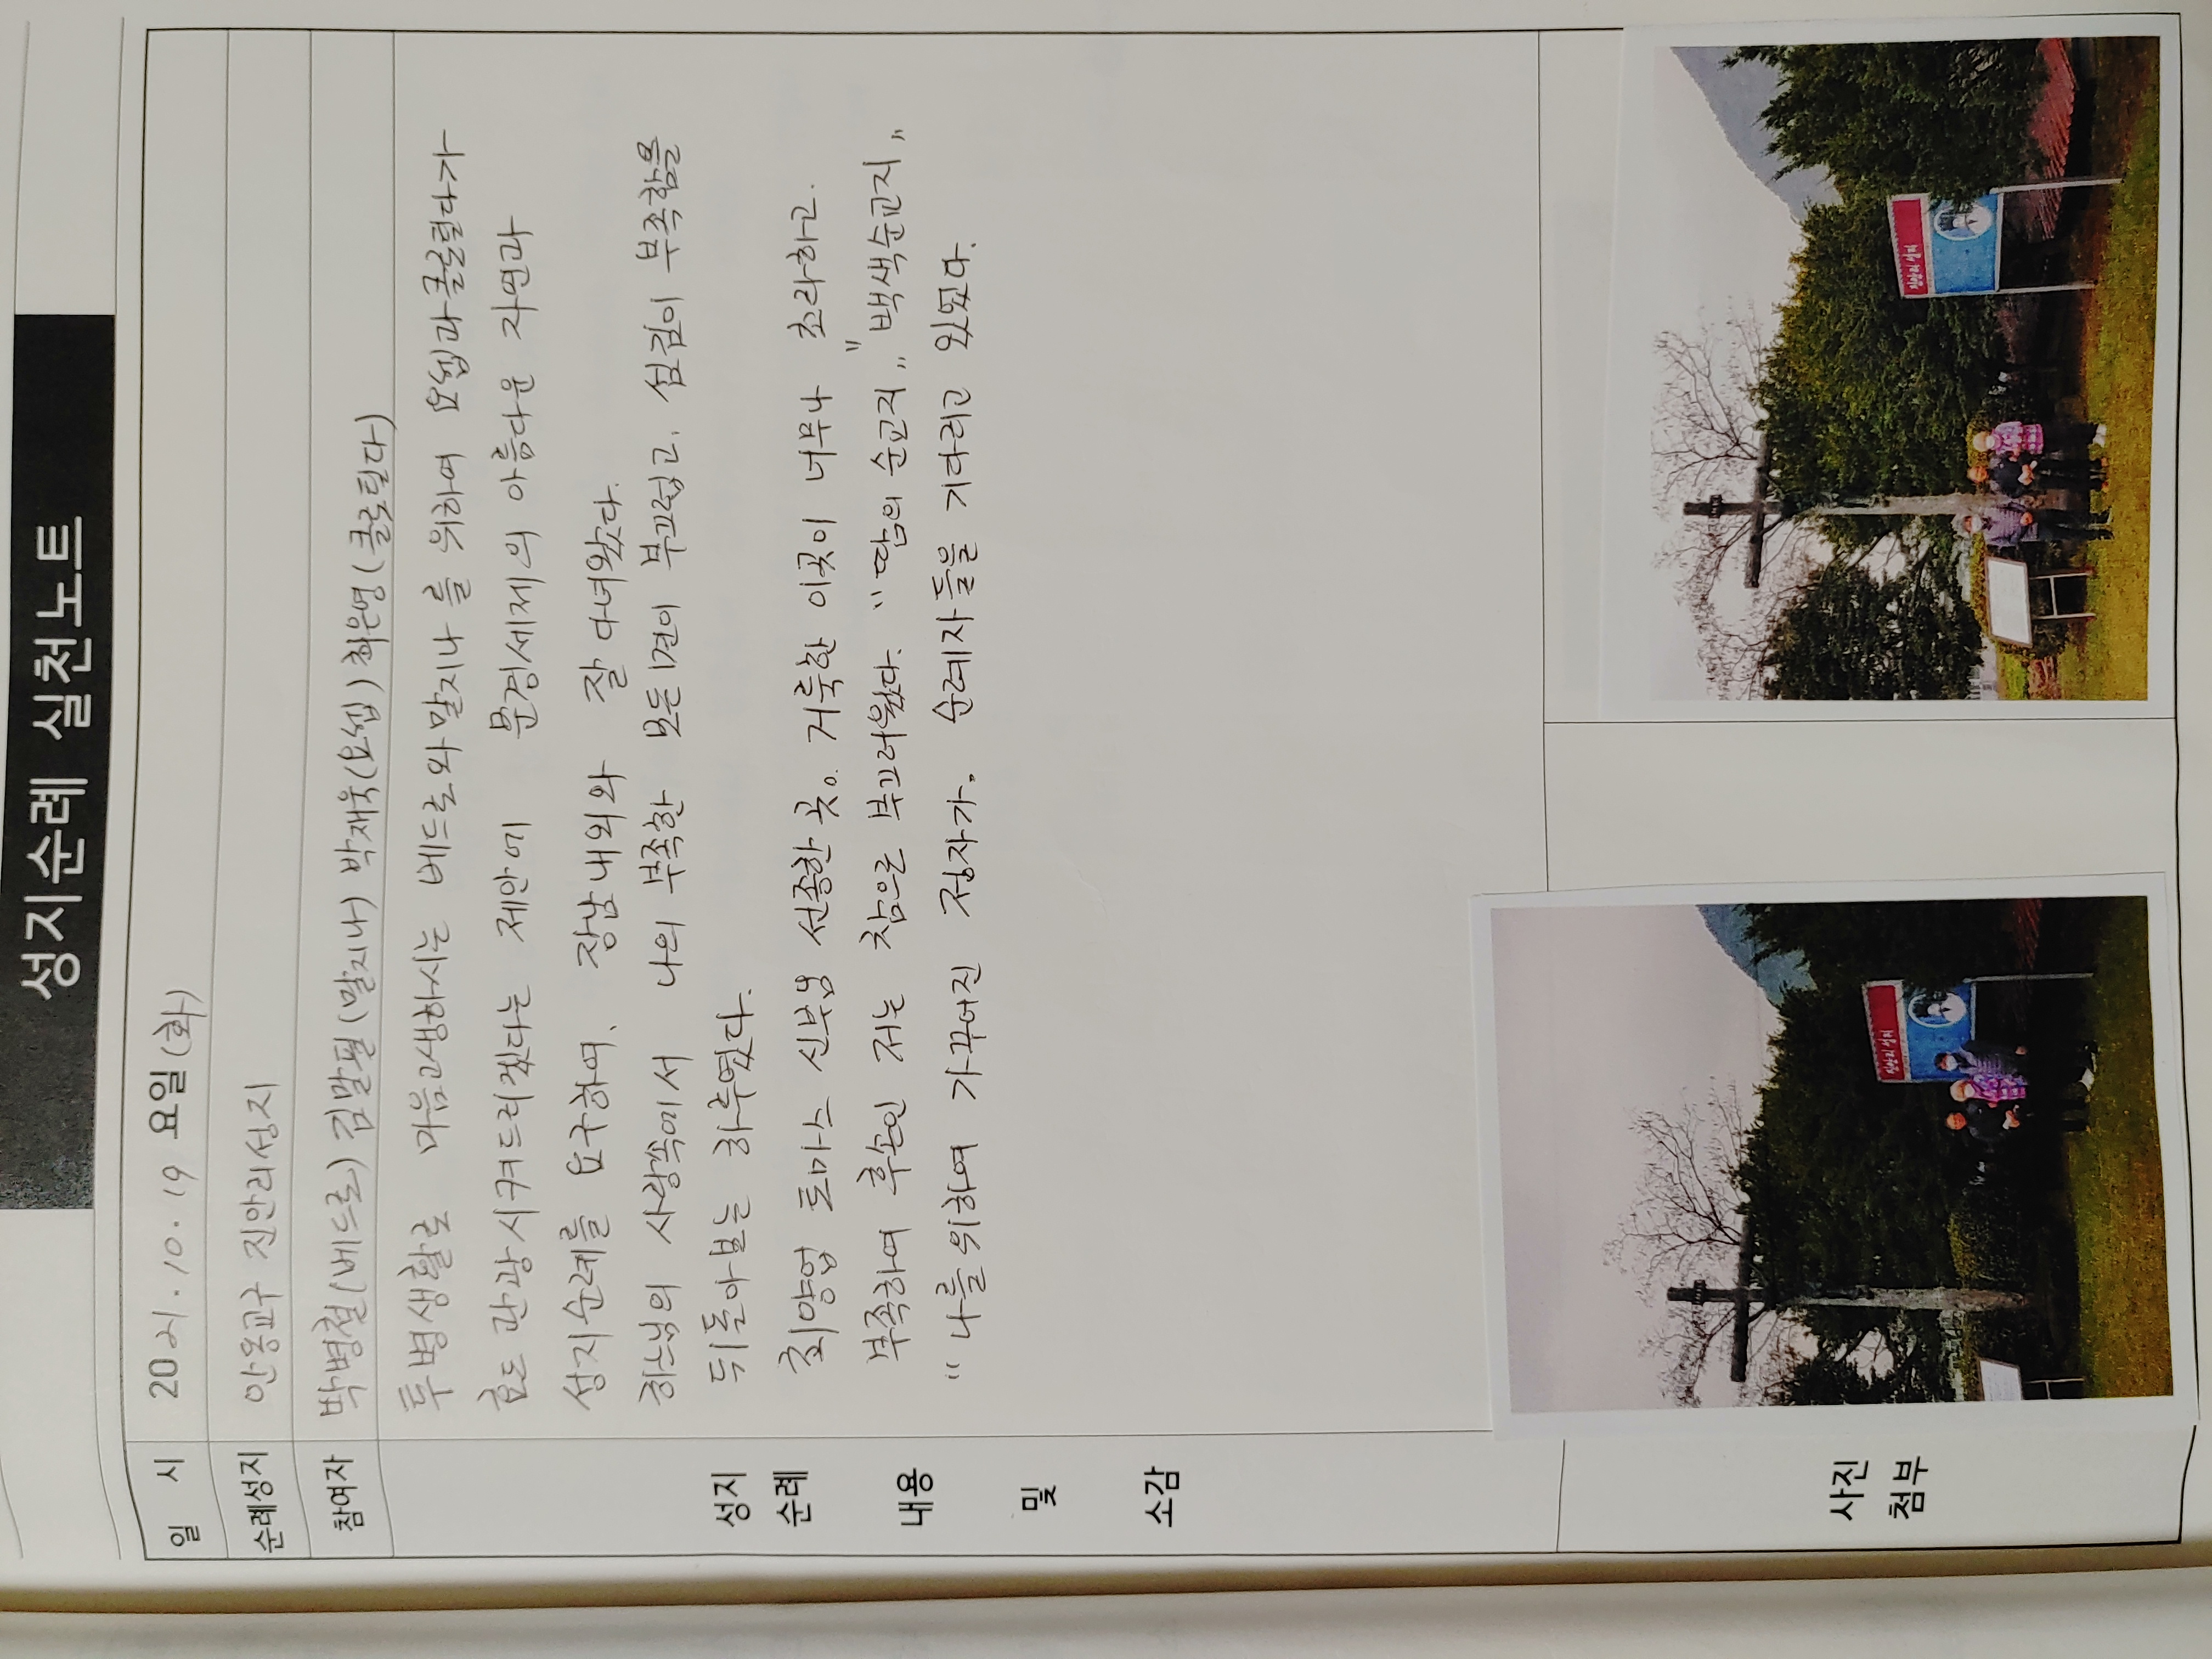 성지순례 실천노트
일 시 2021. 10. 19 요일(화)
순례성지 안동교구 진안리성지
참여자 박병철(베드로) 김말필(말지나) 박재욱(요셉) 최은영(클로틸다)
투병생활로 마음고생하시는 베드로와말지나를 위하여 요셉과클로틸다가
효도 관광시켜드리겠다는 제안에 문경세제의 아름다운 자연과
성지순례를 요구하여, 장남내외와 잘 다녀왔다.
하느님의 사랑속에서 나의 부족한 모든 1견이 부끄럽고, 섬김이 부족함을
뒤돌아보는 하루였다.
최양업 토마스 신부님 선종한 곳. 거룩한 이곳이 너무나 초라하고.
부족하여 후손인 저는 참으로 부끄러웠다. "땀의 순교지" "백색순교지"
"나를위하여 가꾸어진 정자가. 순례자들을 기다리고 있었다.
성지
순례
내용
및
소감
사진
첨부
진안리 성지
진안리 성지